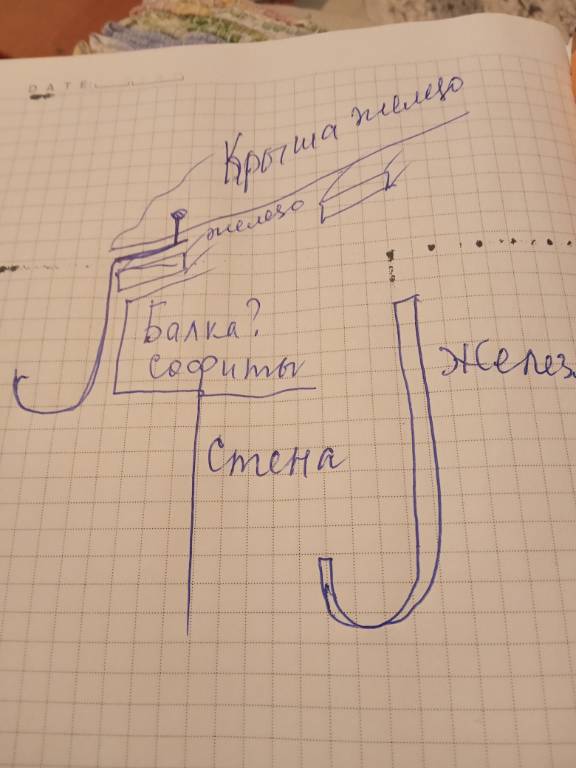 DATE
Крыша железо
железо
Балка?
софиты
Желез
Стена